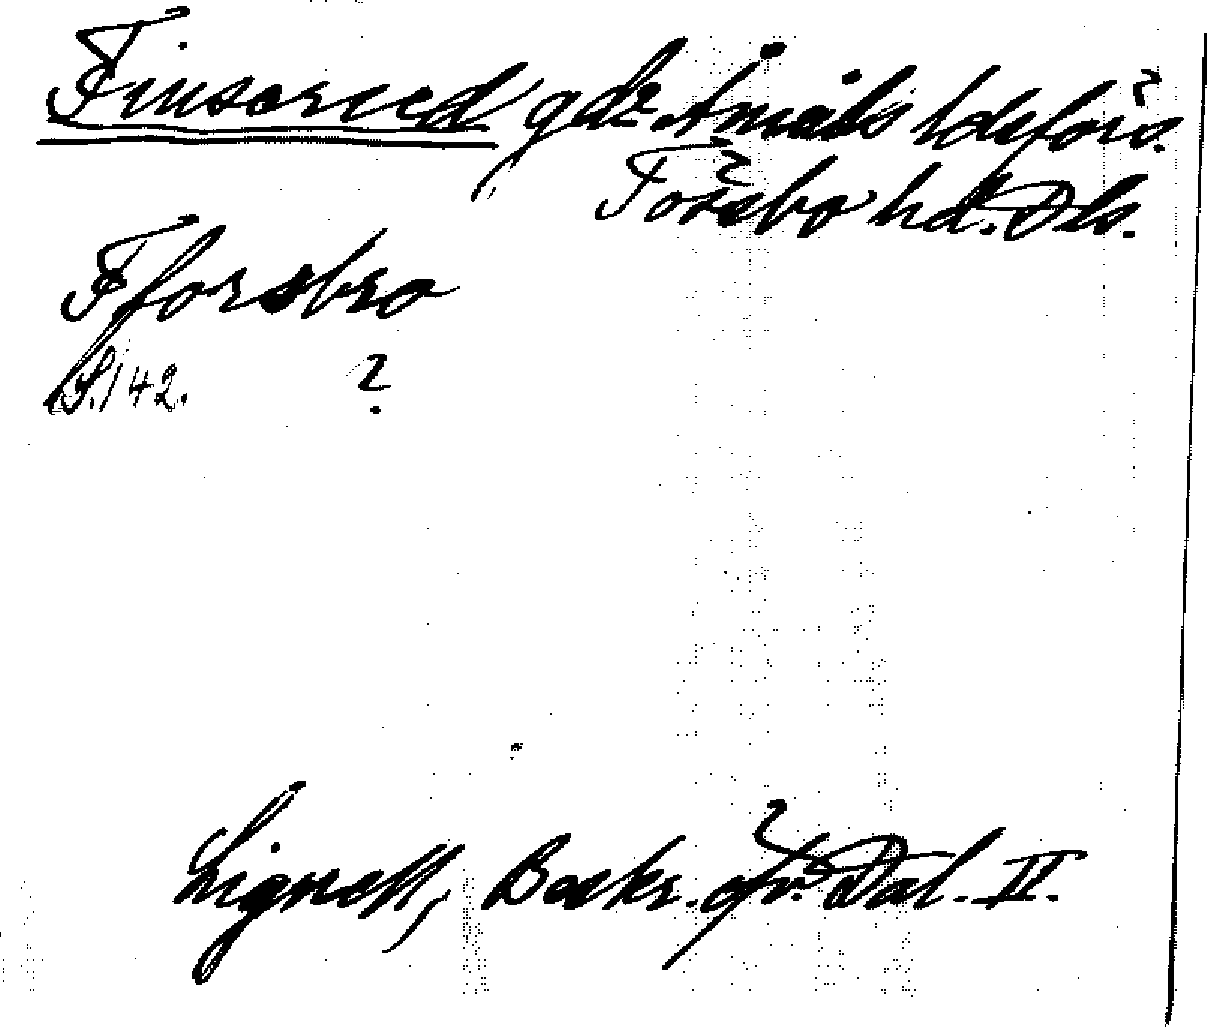 Finserud gde Åmåls ldsförs.
Tössbo hd. Dls.
Fforsbro
S. 142. ?
Lignell, Beskr. öfv. Dal. II.